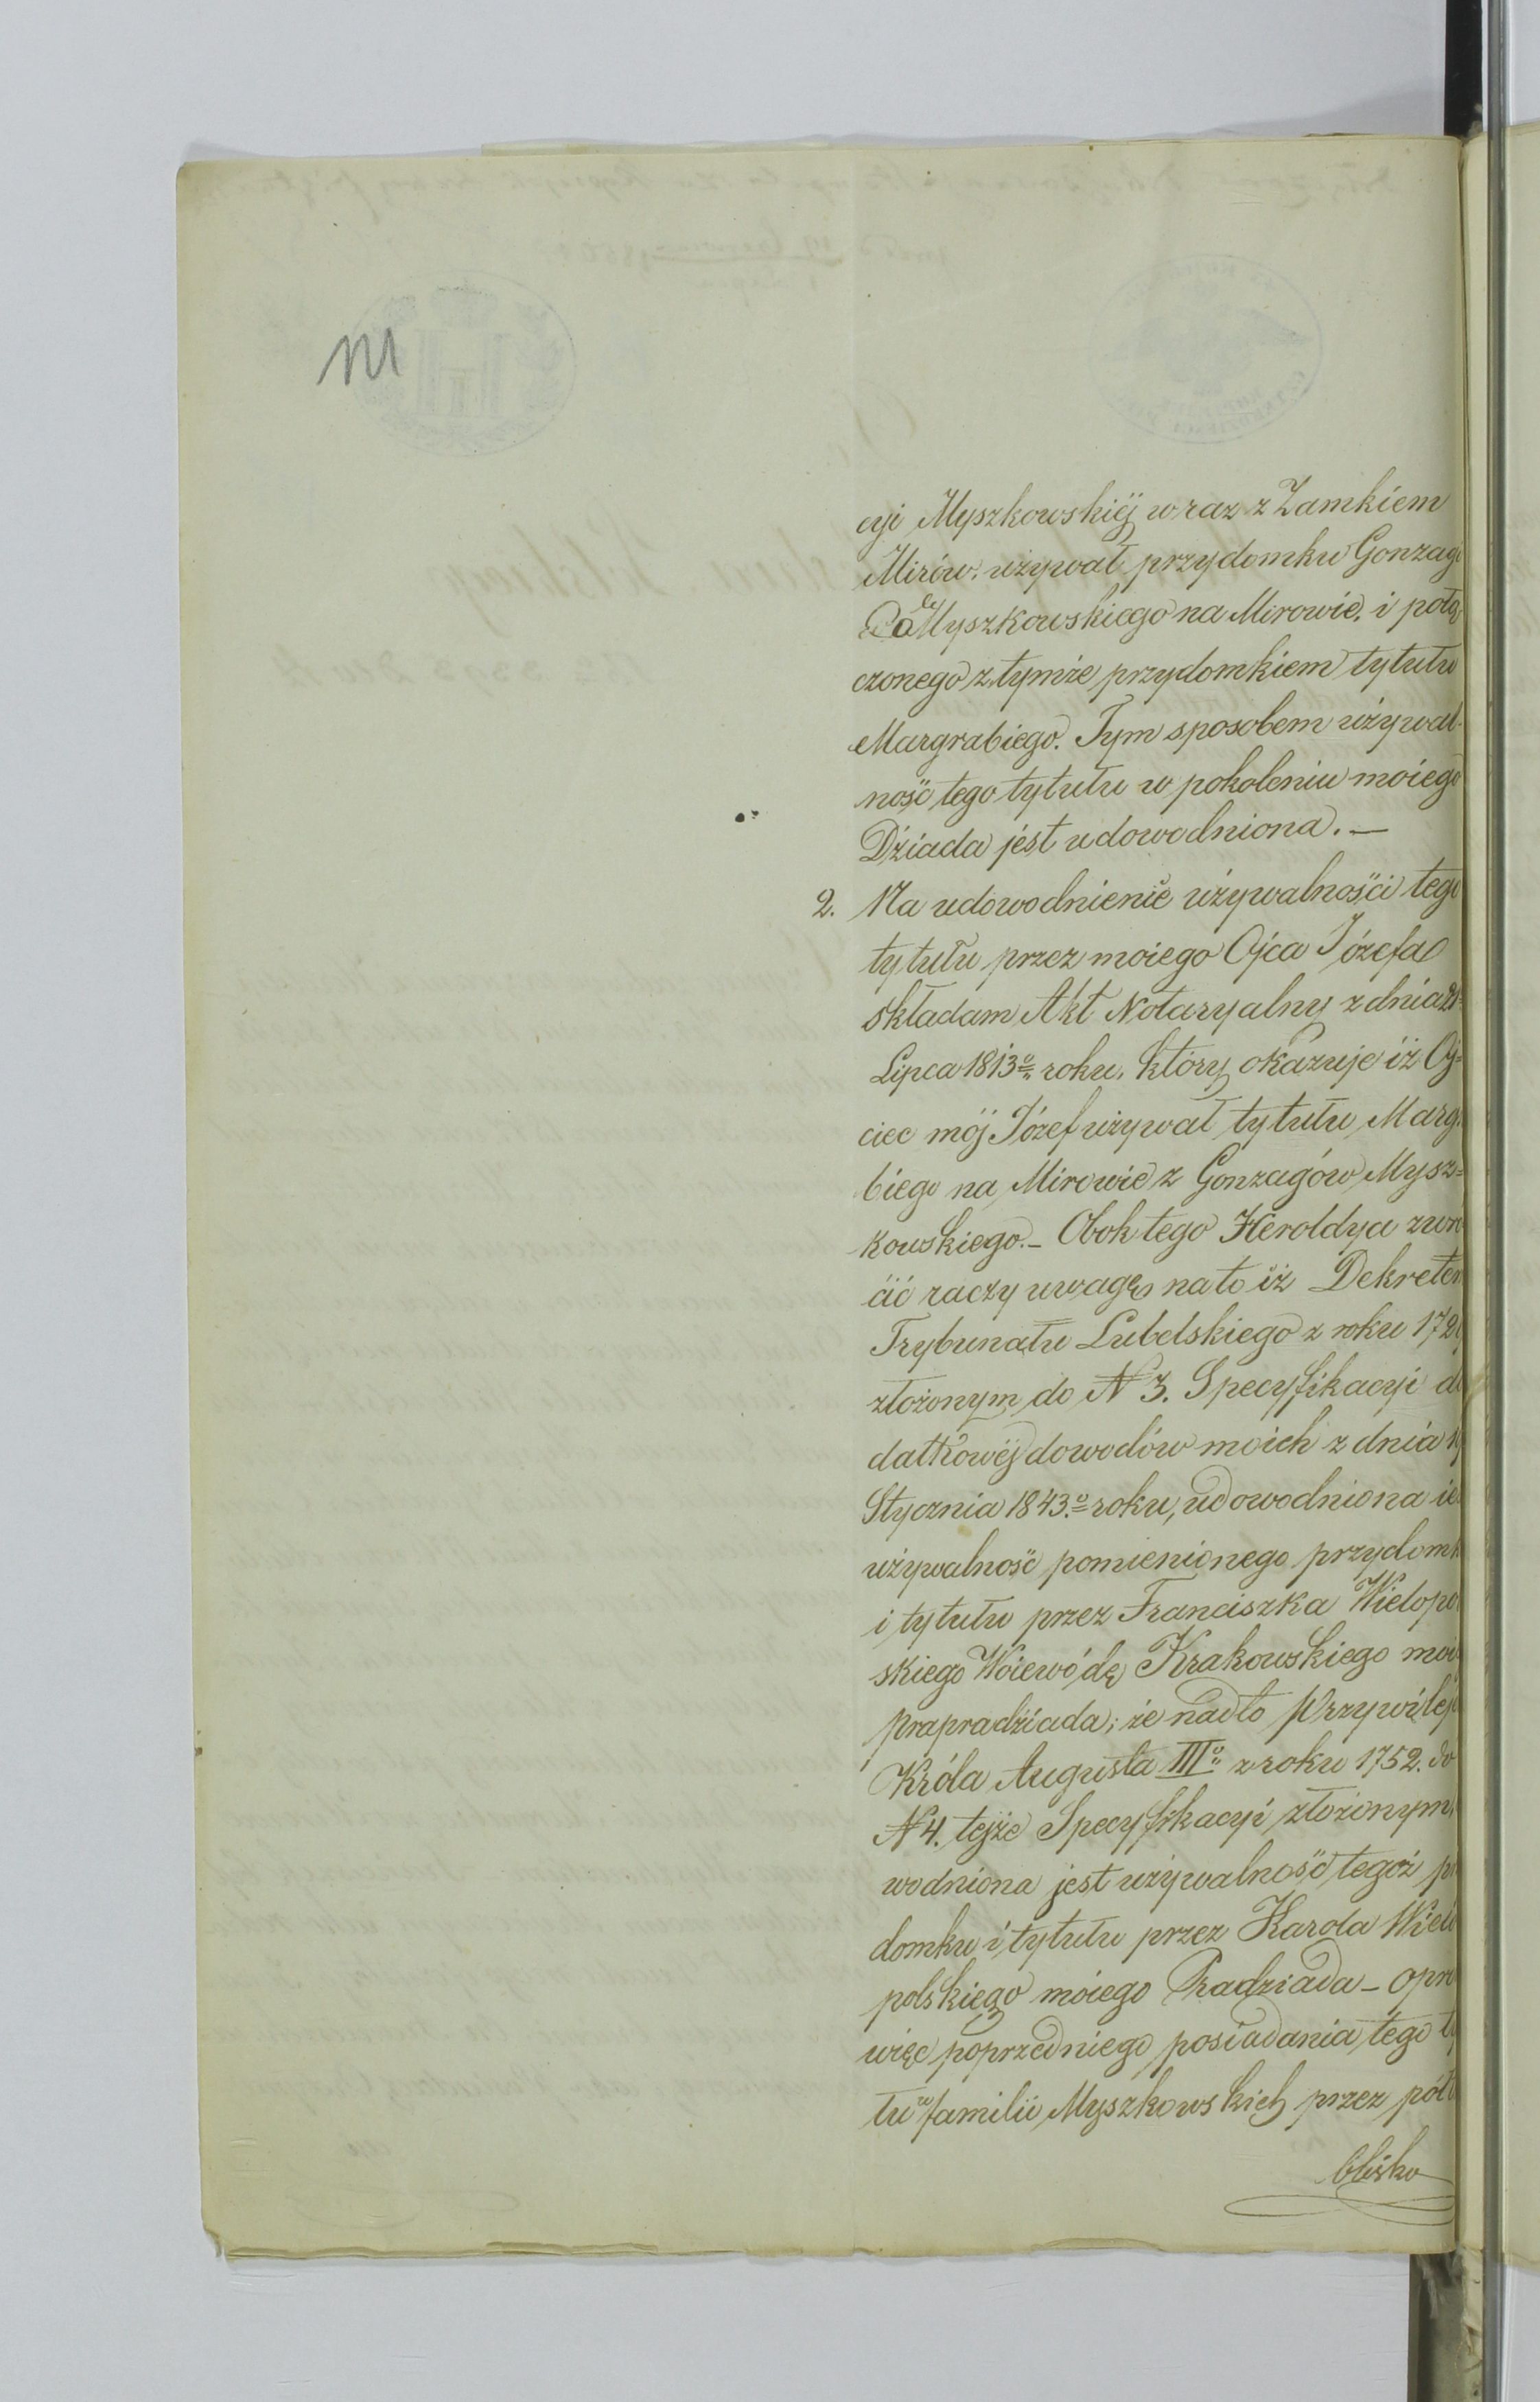 cyi Myszkowskiéj wraz z Zamkiem
Mirów, używał przydomku Gonzagi
Myszkowskiego na Mirowie, i połą
czonego z tymże przydomkiem tytułu
Margrabiego. Tym sposobem używal-
ność tego tytułu w pokoleniu moiego
Dziada jest udowodniona. —
2. Na udowodnienie używalności tego
tytułu przez moiego Ojca Józefa
składam Akt Notaryalny z dnia
Lipca 1813º roku, który okazuje iż Oj=
ciec mój Józef używał tytułu Marg
biego na Mirowie z Gonzagów Mysz=
kowskiego. — Obok tego Heroldya zwró
cić raczy uwagę na to iż Dekretem
Trybunału Lubelskiego z roku 172
złożonym do N 3. Specyfikacyi do
datkowéj dowodów moich z dnia
Stycznia 1843.º roku, udowodniona ie
używalność pomienionego przydomk
i tytułu przez Franciszka Wielopo
skiego Woiewódę Krakowskiego moi
prapradziada; że nadto Przywilej
Króla Augusta IIIº z roku 1752. do
N 4. tejże Specyfikacyi złożonym,
wodniona jest używalność tegoż p
domku i tytułu przez Karola Wielo
polskiego moiego Pradziada — opró
więc poprzedniego posiadania tego ty
tu w familii Myszkowskich przez pół
blisko